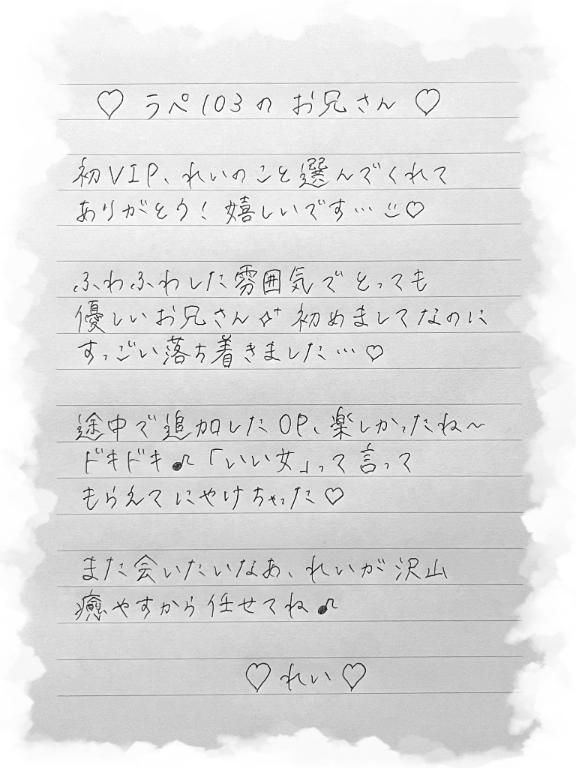 ♡ ラペ103の お兄さん ♡
初VIP、れいのこと選んでくれて
ありがとう！嬉しいです…☺♡
ふわふわした雰囲気でとっても
優しいお兄さん✨初めましてなのに
すっごい落ち着きました…♡
途中で追加したOP、楽しかったね〜
ドキドキ♪「いい女」って言って
もらえてにやけちゃった♡
また会いたいなあ、れいが沢山
癒やすから任せてね♪
♡ れい ♡